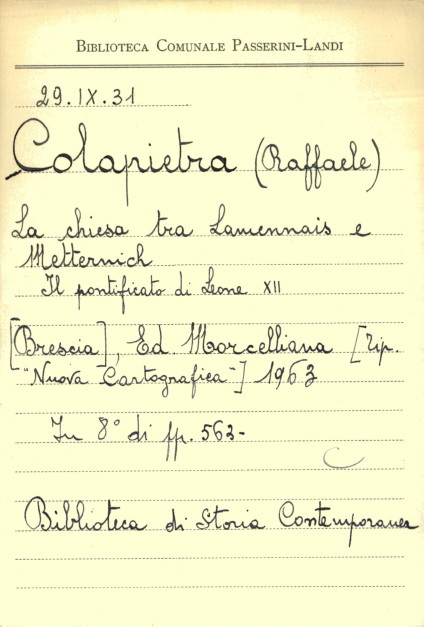 BIBLIOTECA COMUNALE PASSERINI-LANDI
29.IX.31
Colapietra (Raffaele)
La chiesa tra Lamennais e
Metternich
Il pontificato di Leone XII
[Brescia], Ed. Morcelliana [Tip.
"Nuova Cartografica"] 1963
In 8° di pp. 562-
Biblioteca di Storia Contemporanea